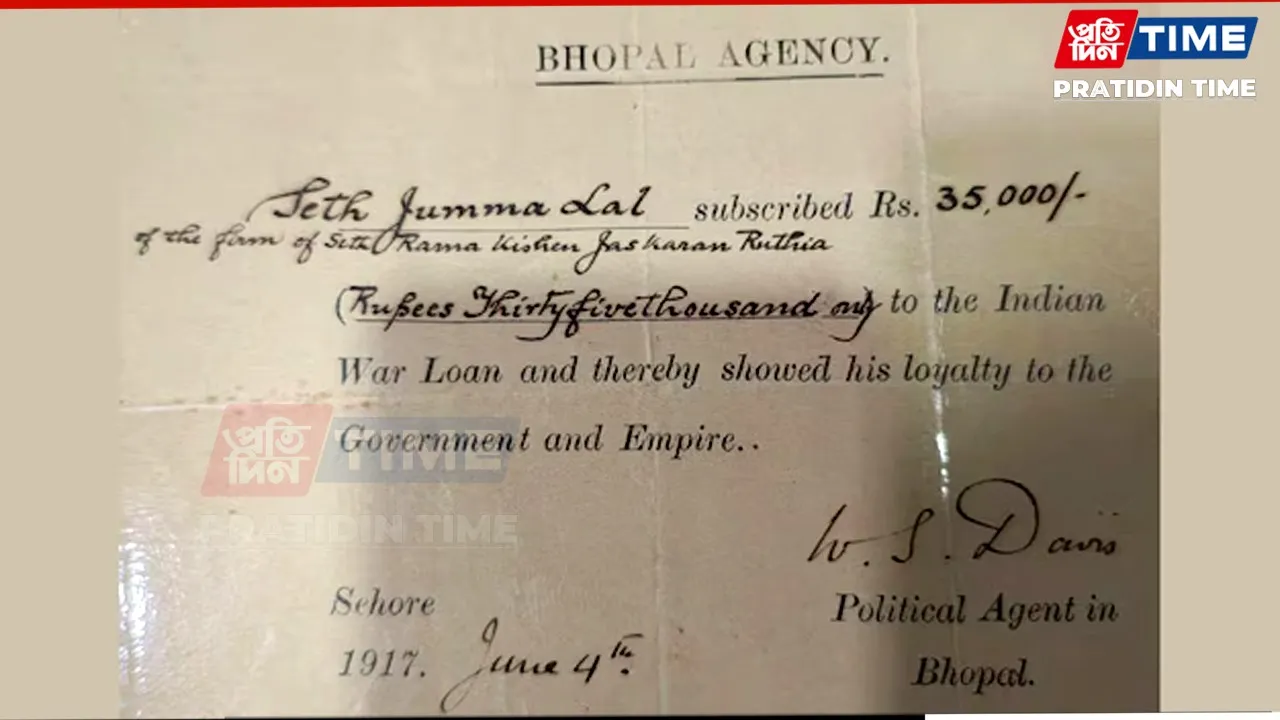 প্রতি
দিন TIME
PRATIDIN TIME
BHOPAL AGENCY.
Seth Jumma Lal subscribed Rs. 35,000/-
of the firm of Seth Rama Kishen Jaskaran Ruthia
(Rupees Thirtyfivethousand only) to the Indian
War Loan and thereby showed his loyalty to the
Government and Empire..
প্রতি
দিন TIME
PRATIDIN TIME
W. S. Davis
Sehore Political Agent in
1917. June 4th. Bhopal.